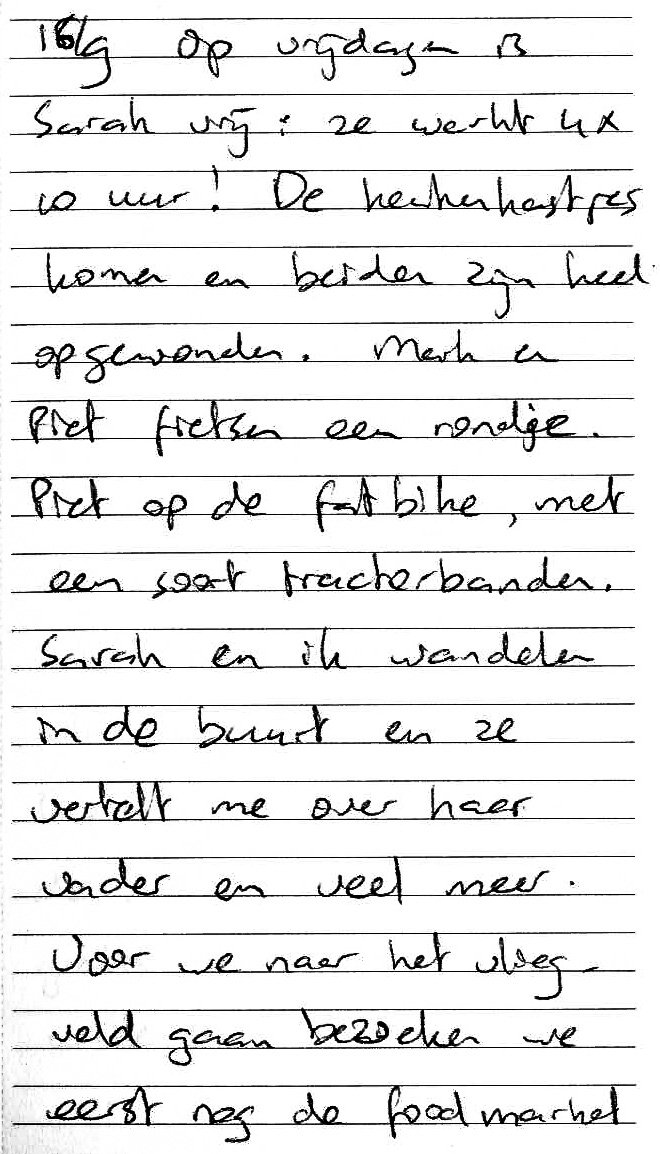 16/9 Op vrijdagen is
Sarah vrij: ze werkt 4x
10 uur! De keukenkastjes
komen en beiden zijn heel
opgewonden. Mark en
Piet fietsen een rondje.
Piet op de fatbike, met
een soort tractorbanden.
Sarah en ik wandelen
in de buurt en ze
vertelt me over haar
vader en veel meer.
Voor we naar het vlieg-
veld gaan bezoeken we
eerst nog de foodmarket